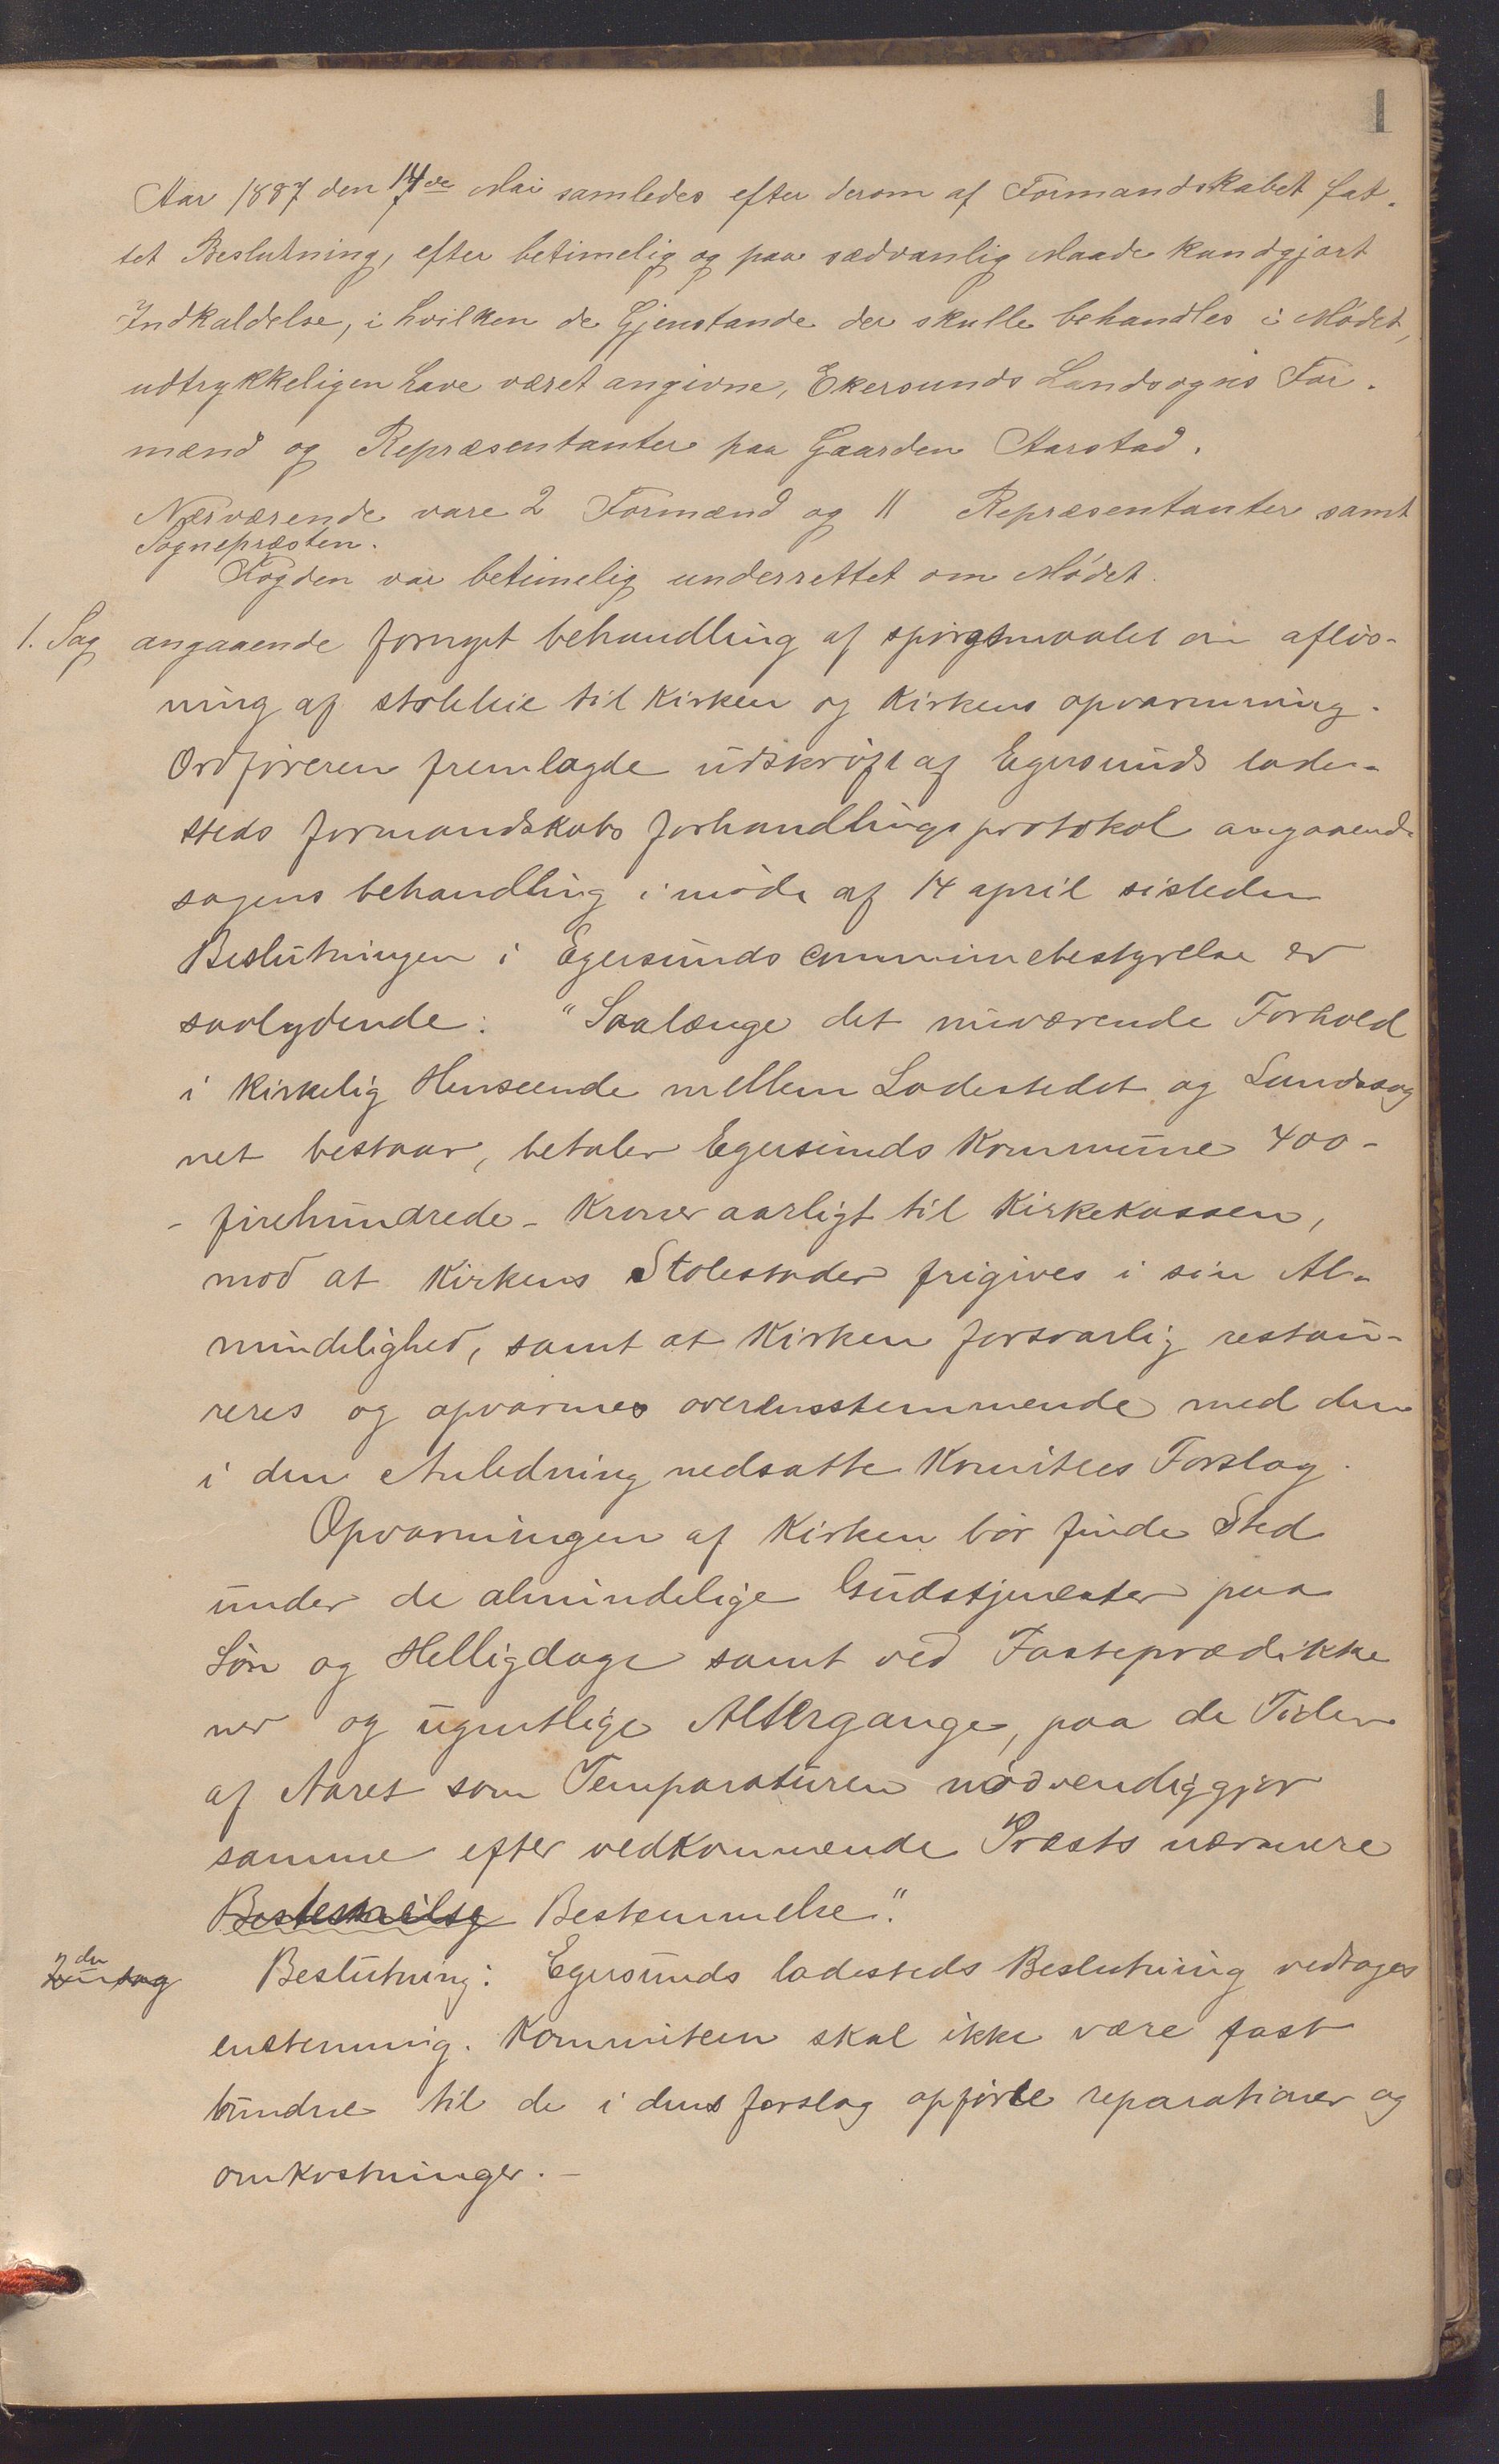 1
Aar 1887 den 14de Mai samledes efter derom af Formandskabet fat-
tet Beslutning, efter betimelig og paa sædvanlig Maade kundgjort
Indkaldelse, i hvilken de Gjenstande der skulle behandles i Mødet,
udtrykkeligen have været angivne, Ekersunds Landsogns For-
mænd og Repræsentanter paa Gaarden Aarstad.
Nærværende vare 2 Formænd og 11 Repræsentanter samt
Sognepræsten.
Fogden var betimelig underrettet om Mødet.
1. Sag angaaende fornyet behandling af spørgsmaalet om afløs-
ning af stolleie til Kirken og Kirkens opvarmning.
Ordføreren fremlagde udskrift af Egersunds lade-
steds formandskabs forhandlingsprotokol angaaende
sagens behandling i møde af 14 april sisteden
Beslutningen i Egersunds communebestyrelse er
saalydende: "Saalænge det nuværende Forhold
i kirkelig Henseende mellem Ladestedet og Landsog
net bestaar, betaler Egersunds Kommune 400-
- firehundrede - Kroner aarligt til Kirkekassen,
mod at Kirkens Stolestader frigives i sin Al-
mindelighed, samt at Kirken forsvarlig restau-
reres og opvarmes overensstemmende med den
i den Anledning nedsatte Komitees Forslag.
Opvarmningen af Kirken bør finde Sted
under de almindelige Gudstjenester paa
Søn og Helligdage samt ved Fasteprædikke
ner og ugentlige Altergange, paa de Tider
af Aaret som Temparaturen nødvendiggjør
samme efter vedkommende Præsts nærmere
Bestemmelse Bestemmelse."
2den sag Beslutning: Egersunds ladesteds Beslutning vedtages
enstemmig. Kommiteen skal ikke være fast
bundne til de i dens forslag opførte reparationer og
omkostninger. -